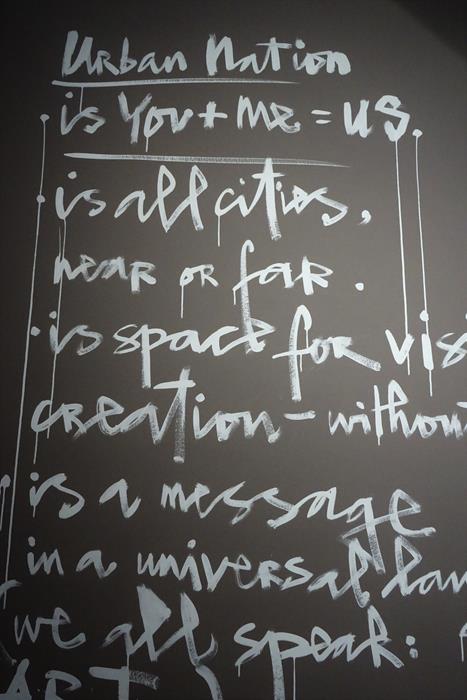 Urban Nation
is You + me = us.
is all cities,
near or far.
is space for vis
creation - without
is a message
in a universal lan
we all speak:
ART